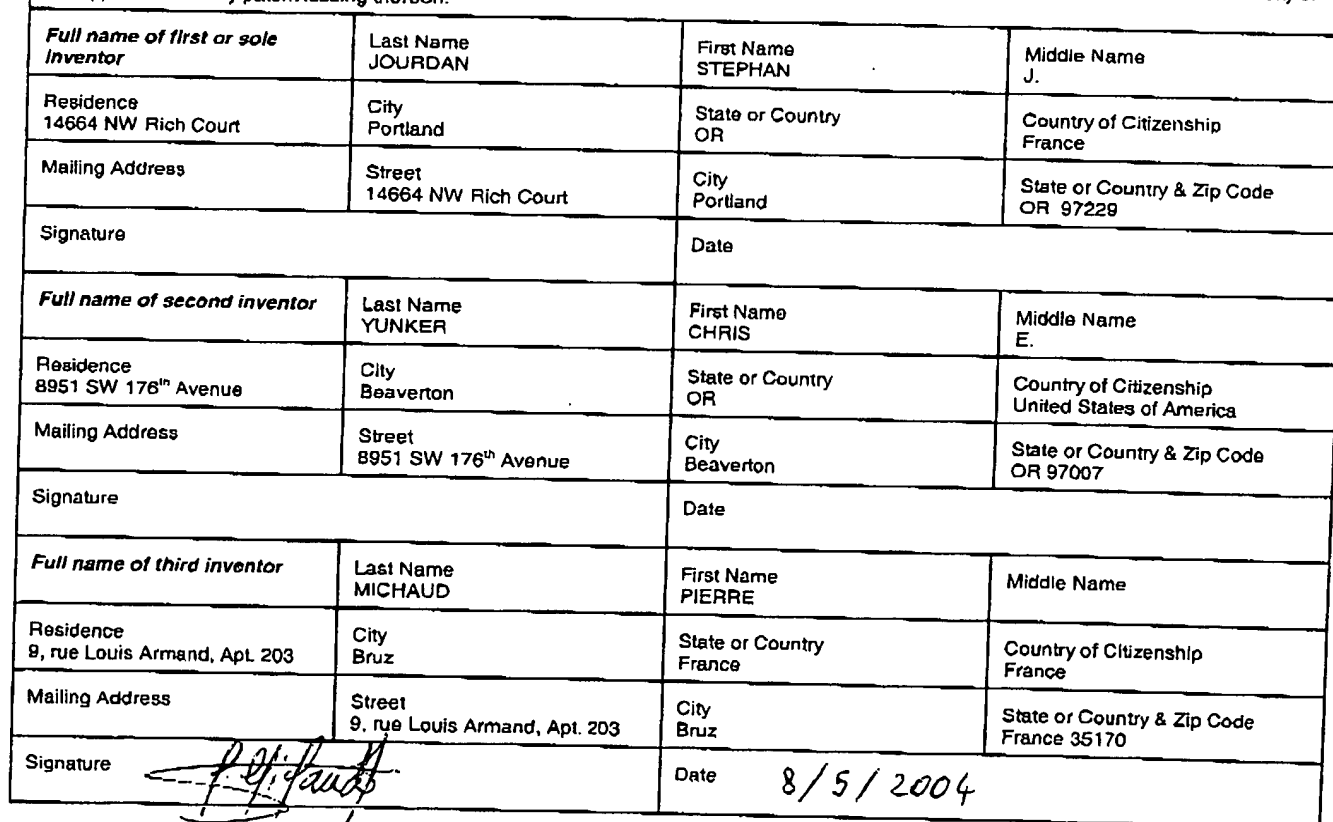 Full name of first or sole inventor
Last Name
JOURDAN
First Name
STEPHAN
Middle Name
J.
Residence
14664 NW Rich Court
City
Portland
State or Country
OR
Country of Citizenship
France
Mailing Address
Street
14664 NW Rich Court
City
Portland
State or Country & Zip Code
OR 97229
Signature
Date
Full name of second inventor
Last Name
YUNKER
First Name
CHRIS
Middle Name
E.
Residence
8951 SW 176th Avenue
City
Beaverton
State or Country
OR
Country of Citizenship
United States of America
Mailing Address
Street
8951 SW 176th Avenue
City
Beaverton
State or Country & Zip Code
OR 97007
Signature
Date
Full name of third inventor
Last Name
MICHAUD
First Name
PIERRE
Middle Name
Residence
9, rue Louis Armand, Apt. 203
City
Bruz
State or Country
France
Country of Citizenship
France
Mailing Address
Street
9, rue Louis Armand, Apt. 203
City
Bruz
State or Country & Zip Code
France 35170
Signature
P. Michaud
Date 8/5/2004